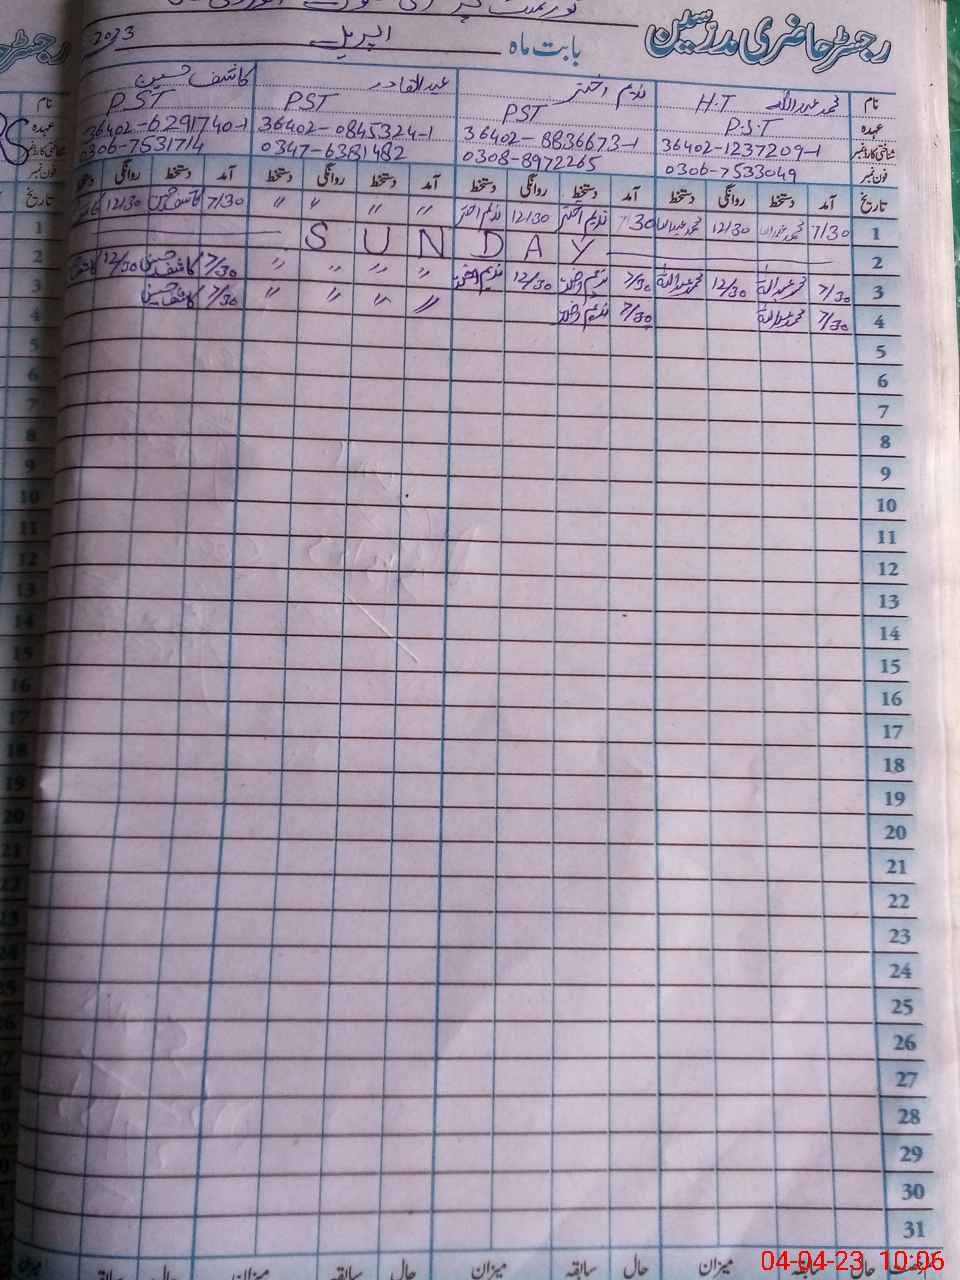 رجسٹر حاضری مدرسین بابت ماہ اپریل 2023
نام محمد عبداللہ H.T ندیم اختر عبدالقادر کاشف حسین
عہدہ P.S.T PST PST PST
شناختی کارڈ نمبر 36402-1237209-1 36402-8836673-1 36402-0845324-1 36402-6291740-1
فون نمبر 0306-7533049 0308-8972265 0347-6381482 0306-7531714
تاریخ آمد دستخط روانگی دستخط آمد دستخط روانگی دستخط آمد دستخط روانگی دستخط آمد دستخط روانگی دستخط
1 7/30 محمد عبداللہ 12/30 محمد عبداللہ 7/30 ندیم اختر 12/30 ندیم اختر 〃 〃 〃 〃 7/30 کاشف حسین 12/30
2 SUNDAY
3 7/30 محمد عبداللہ 12/30 محمد عبداللہ 7/30 ندیم اختر 12/30 ندیم اختر 〃 〃 〃 〃 7/30 کاشف حسین 12/30
4 7/30 محمد عبداللہ 7/30 ندیم اختر 〃 〃 〃 〃 7/30 کاشف حسین
5
6
7
8
9
10
11
12
13
14
15
16
17
18
19
20
21
22
23
24
25
26
27
28
29
30
31
سابقہ حال میزان سابقہ حال میزان سابقہ حال میزان سابقہ حال میزان
04-04-23 10:06